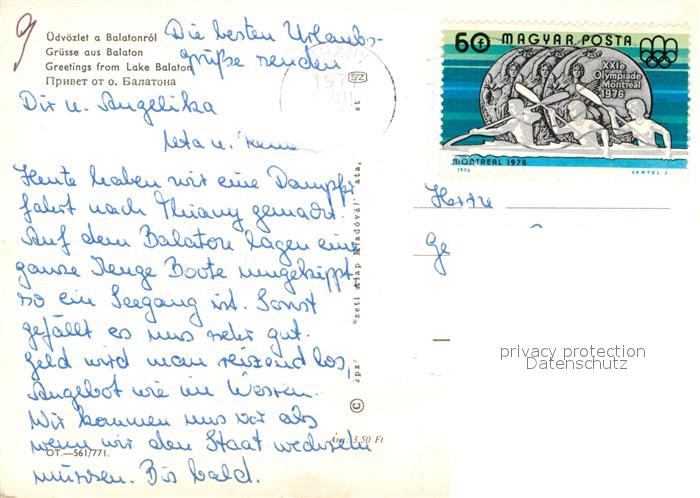 Üdvözlet a Balatonról
Grüsse aus Balaton
Greetings from Lake Balaton
Привет от о. Балатона
Die besten Urlaubs-
grüße senden
Dir u. Angelika
u.
Heute haben wir eine Dampfer
fahrt nach Thiany gemacht.
Auf dem Balaton lagen eine
ganze Menge Boote umgekippt
so ein Seegang ist. Sonst
gefällt es uns sehr gut.
Geld wird man reizend los,
Angebot wie im Westen.
Wir kommen uns vor als
wenn wir den Staat wechseln
müssen. Bis bald.
Ára: 3,50 Ft
OT.—561/771.
60 f MAGYAR POSTA
XXIe
Olympiade
Montréal
1976
MONTREAL 1976
1976 VERTEL J.
Herrn
Ge
privacy protection
Datenschutz